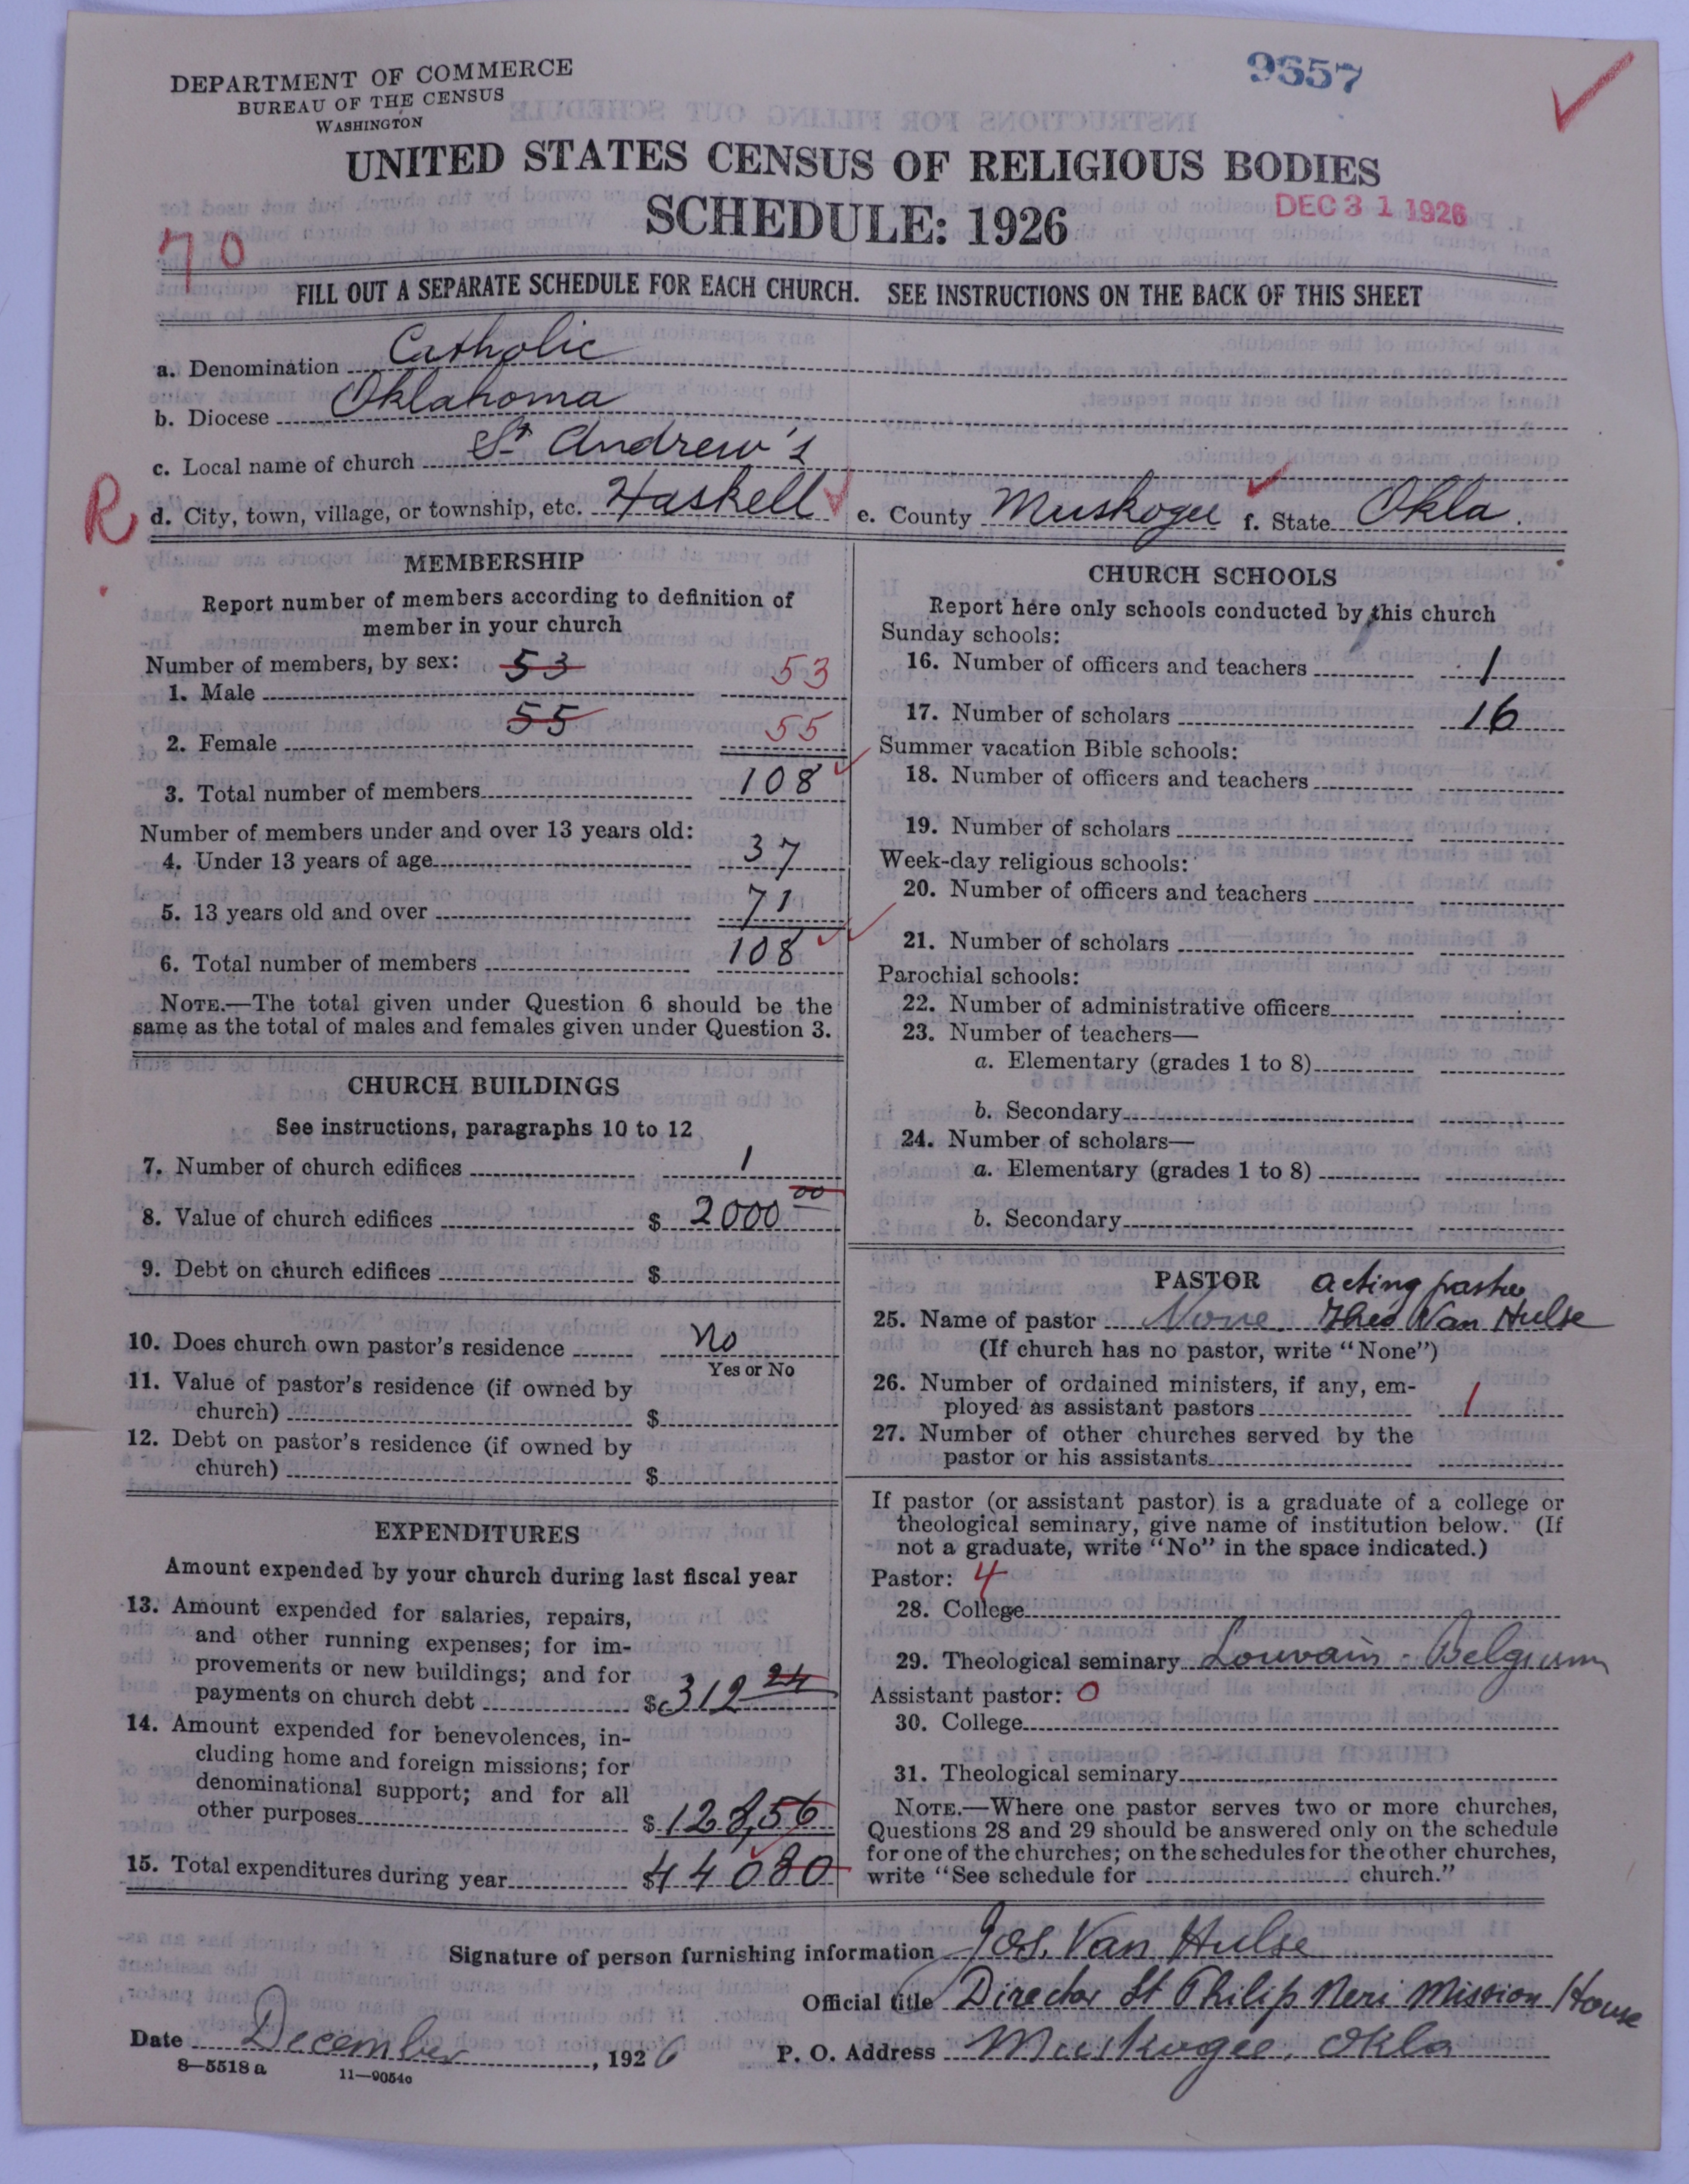 DEPARTMENT OF COMMERCE
BUREAU OF THE CENSUS
WASHINGTON
9557
UNITED STATES CENSUS OF RELIGIOUS BODIES
SCHEDULE: 1926
DEC 31 1926
70
FILL OUT A SEPARATE SCHEDULE FOR EACH CHURCH. SEE INSTRUCTIONS ON THE BACK OF THIS SHEET
a. Denomination Catholic
b. Diocese Oklahoma
c. Local name of church St Andrew's
R d. City, town, village, or township, etc. Haskell e. County Muskogee f. State Okla.
MEMBERSHIP
Report number of members according to definition of
member in your church
Number of members, by sex:
1. Male 53 53
2. Female 55 55
3. Total number of members 108
Number of members under and over 13 years old:
4. Under 13 years of age 37
5. 13 years old and over 71
6. Total number of members 108
NOTE.—The total given under Question 6 should be the
same as the total of males and females given under Question 3.
CHURCH BUILDINGS
See instructions, paragraphs 10 to 12
7. Number of church edifices 1
8. Value of church edifices $ 2000 00
9. Debt on church edifices $
10. Does church own pastor's residence No
Yes or No
11. Value of pastor's residence (if owned by
church) $
12. Debt on pastor's residence (if owned by
church) $
EXPENDITURES
Amount expended by your church during last fiscal year
13. Amount expended for salaries, repairs,
and other running expenses; for im-
provements or new buildings; and for
payments on church debt $ 312 24
14. Amount expended for benevolences, in-
cluding home and foreign missions; for
denominational support; and for all
other purposes $ 128,56
15. Total expenditures during year $ 440 80
CHURCH SCHOOLS
Report here only schools conducted by this church
Sunday schools:
16. Number of officers and teachers 1
17. Number of scholars 16
Summer vacation Bible schools:
18. Number of officers and teachers
19. Number of scholars
Week-day religious schools:
20. Number of officers and teachers
21. Number of scholars
Parochial schools:
22. Number of administrative officers
23. Number of teachers—
a. Elementary (grades 1 to 8)
b. Secondary
24. Number of scholars—
a. Elementary (grades 1 to 8)
b. Secondary
PASTOR acting pastor
25. Name of pastor None. Theo Van Hulse
(If church has no pastor, write "None")
26. Number of ordained ministers, if any, em-
ployed as assistant pastors 1
27. Number of other churches served by the
pastor or his assistants
If pastor (or assistant pastor) is a graduate of a college or
theological seminary, give name of institution below. (If
not a graduate, write "No" in the space indicated.)
Pastor: 4
28. College
29. Theological seminary Louvain - Belgium
Assistant pastor: 0
30. College
31. Theological seminary
NOTE.—Where one pastor serves two or more churches,
Questions 28 and 29 should be answered only on the schedule
for one of the churches; on the schedules for the other churches,
write "See schedule for church."
Signature of person furnishing information Jos. Van Hulse
Official title Director St Philip Neri Mission House
Date December, 1926 P. O. Address Muskogee, Okla
8—5518 a 11—9054c